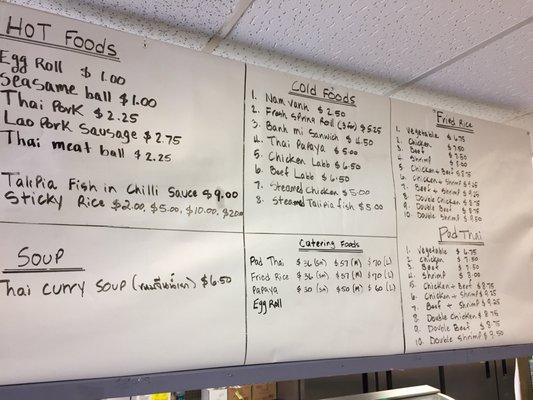 HOT Foods
Egg Roll $1.00
Seasame ball $1.00
Thai Pork $2.25
Lao Pork Sausage $2.75
Thai meat ball $2.25
Talipia Fish in Chilli Sauce $9.00
Sticky Rice $2.00, $5.00, $10.00, $20.00
Soup
Thai curry Soup ( $6.50
Cold Foods
1. Nam vanh $2.50
2. Fresh Spring Roll (3 for) $5.25
3. Banh mi Sanwich $4.50
4. Thai Papaya $5.00
5. Chicken Labb $6.50
6. Beef Labb $6.50
7. Steamed Chicken $5.00
8. Steamed Talipia fish $5.00
Catering Foods
Pad Thai $36 (sm) $57 (M) $70 (L)
Fried Rice $36 (sm) $57 (M) $70 (L)
Papaya $30 (sm) $50 (M) $60 (L)
Egg Roll
Fried Rice
1. Vegetable $6.75
2. Chicken $7.50
3. Beef $7.50
4. Shrimp $8.00
5. Chicken + Beef $8.75
6. Chicken + Shrimp $9.25
7. Beef + Shrimp $9.25
8. Double Chicken $8.75
9. Double Beef $8.75
10. Double Shrimp $9.50
Pad Thai
1. Vegetable $6.75
2. Chicken $7.50
3. Beef $7.50
4. Shrimp $8.00
5. Chicken + Beef $8.75
6. Chicken + Shrimp $9.25
7. Beef + Shrimp $9.25
8. Double Chicken $8.75
9. Double Beef $8.75
10. Double Shrimp $9.50